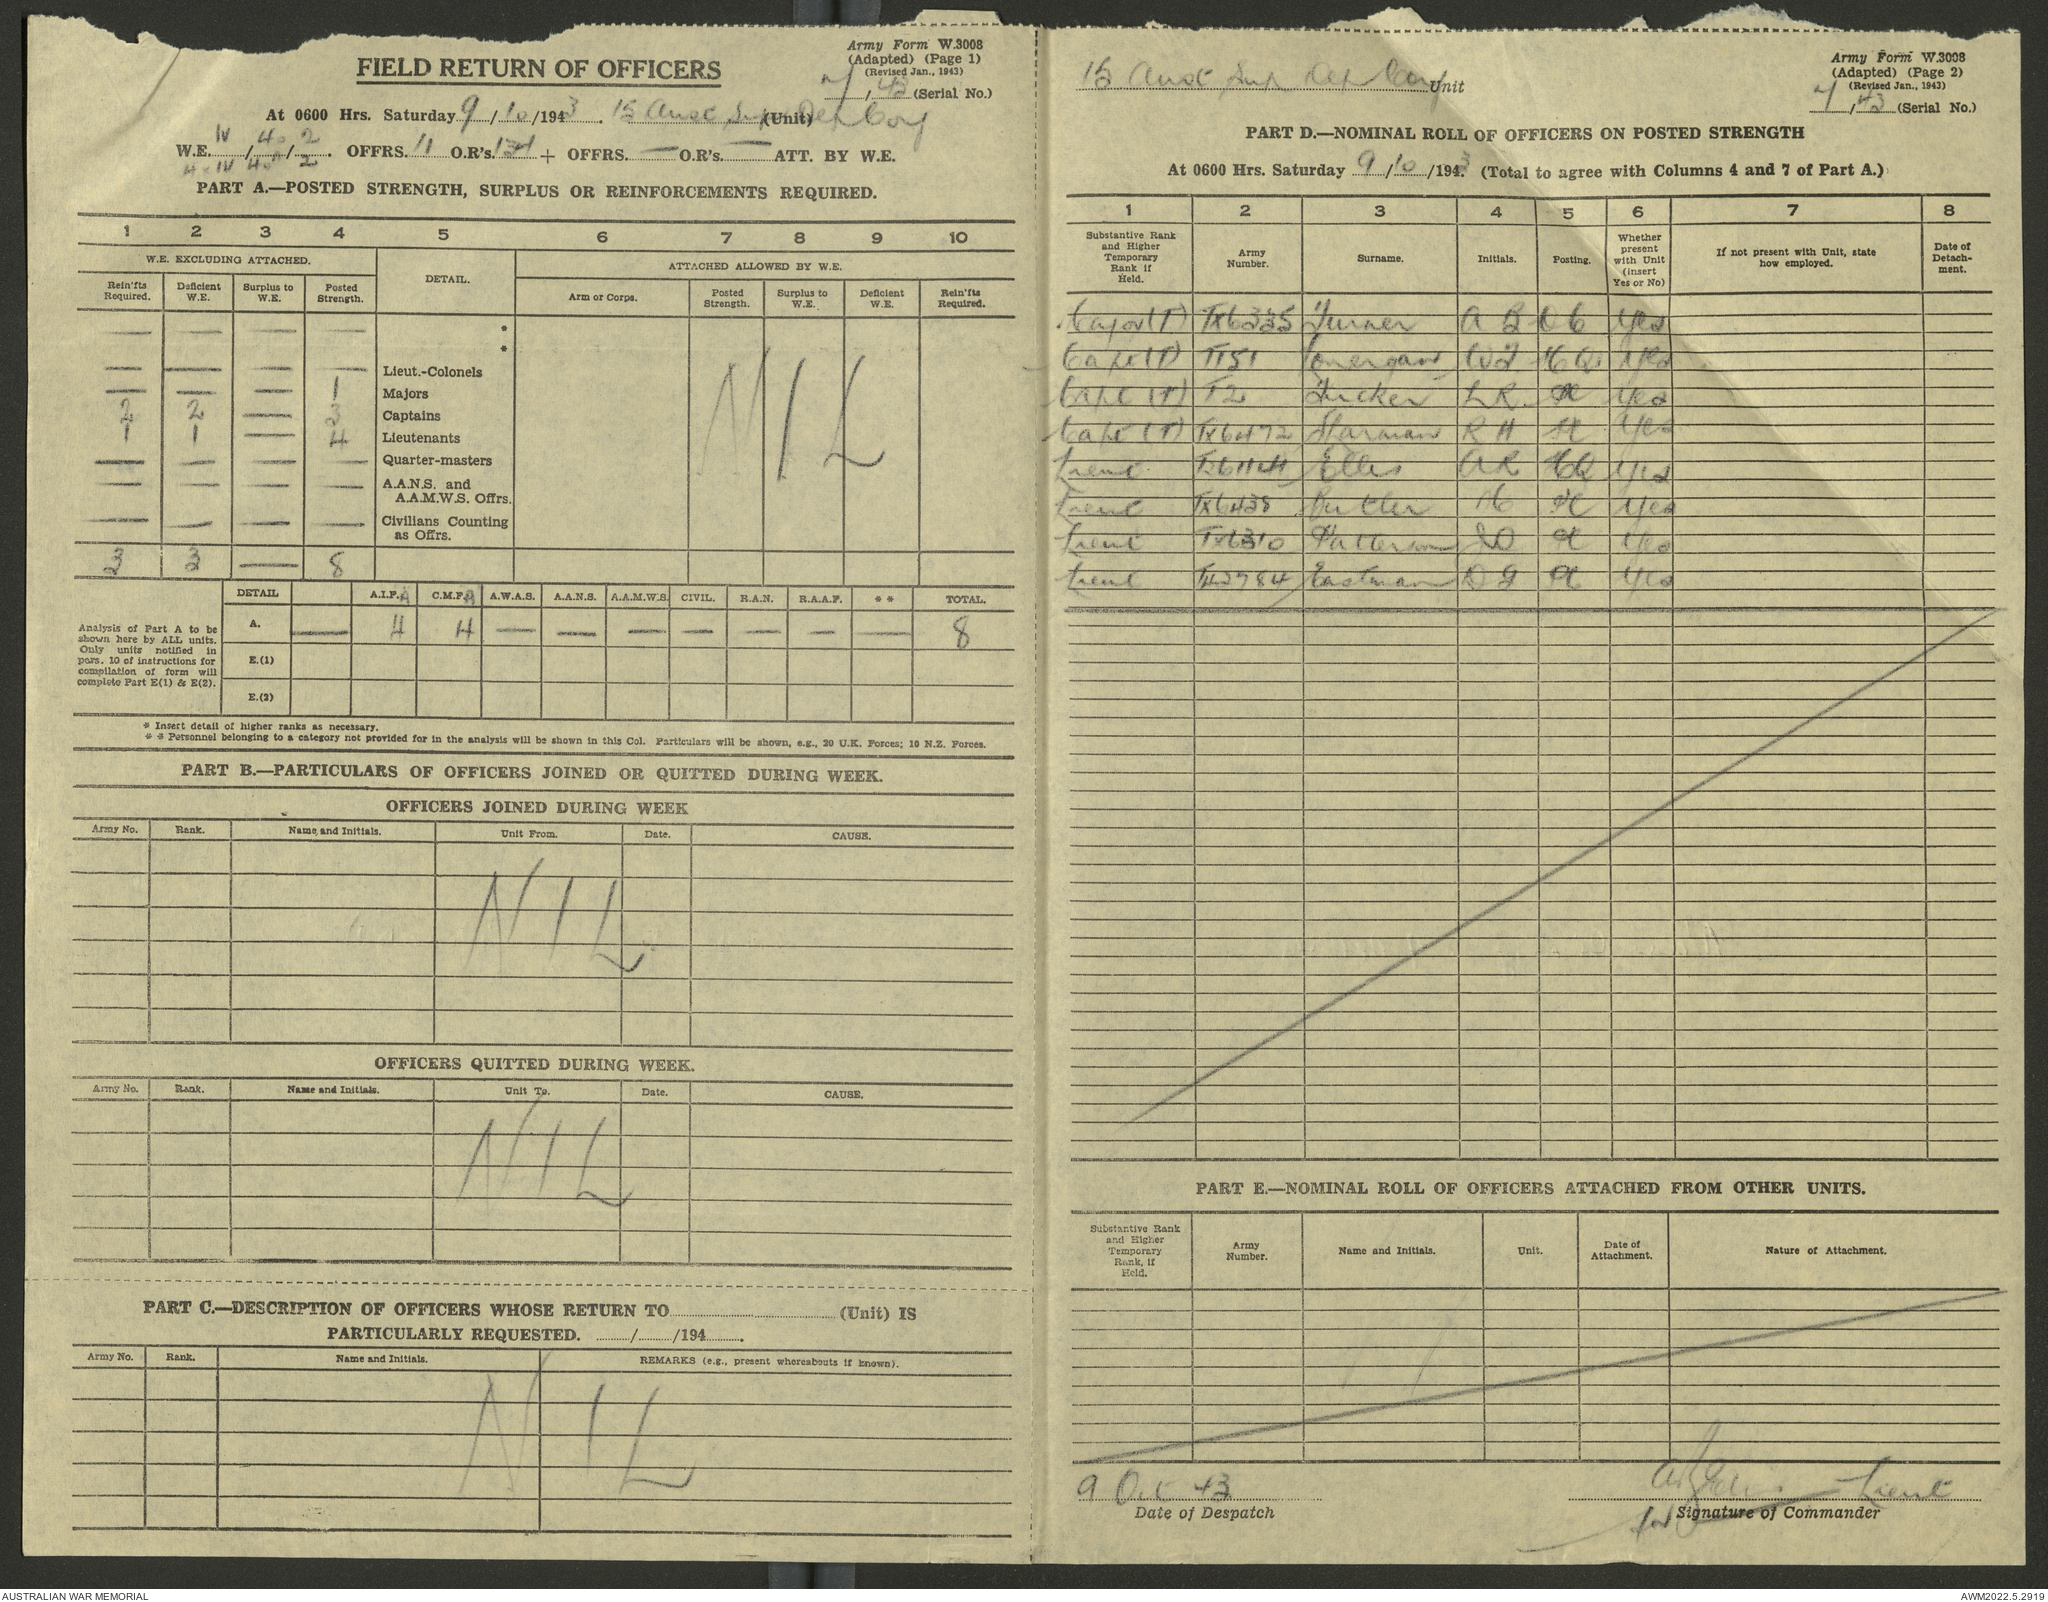 Army Form W.3008
(Adapted) (Page 1)
(Revised Jan., 1943)
FIELD RETURN OF OFFICERS
(Serial No.)
At 0600 Hrs. Saturday 9/10/1943. 15 Aust Sup Dep Coy (Unit)
W.E. IV/40/2. OFFRS. 11 O.R's. 134 + OFFRS. — O.R's. — ATT. BY W.E.
PART A.—POSTED STRENGTH, SURPLUS OR REINFORCEMENTS REQUIRED.
1 2 3 4 5 6 7 8 9 10
W.E. EXCLUDING ATTACHED. DETAIL. ATTACHED ALLOWED BY W.E.
Rein'fts Required. Deficient W.E. Surplus to W.E. Posted Strength. Arm or Corps. Posted Strength. Surplus to W.E. Deficient W.E. Rein'fts Required.
— — — — *
— — — — Lieut.-Colonels
— — — 1 Majors
2 2 — 3 Captains
1 1 — 4 Lieutenants
— — — — Quarter-masters
— — — — A.A.N.S. and A.A.M.W.S. Offrs.
— — — — Civilians Counting as Offrs.
NIL
3 3 — 8
DETAIL A.I.F. C.M.F. A.W.A.S. A.A.N.S. A.A.M.W.S. CIVIL. R.A.N. R.A.A.F. * * TOTAL.
Analysis of Part A to be shown here by ALL units. Only units notified in pars. 10 of instructions for compilation of form will complete Part E(1) & E(2).
A. — 4 4 — — — — — — — 8
E.(1)
E.(2)
* Insert detail of higher ranks as necessary.
* * Personnel belonging to a category not provided for in the analysis will be shown in this Col. Particulars will be shown, e.g., 20 U.K. Forces; 10 N.Z. Forces.
PART B.—PARTICULARS OF OFFICERS JOINED OR QUITTED DURING WEEK.
OFFICERS JOINED DURING WEEK
Army No. Rank. Name and Initials. Unit From. Date. CAUSE.
NIL
OFFICERS QUITTED DURING WEEK.
Army No. Rank. Name and Initials. Unit To. Date. CAUSE.
NIL
PART C.—DESCRIPTION OF OFFICERS WHOSE RETURN TO (Unit) IS
PARTICULARLY REQUESTED. / /194 .
Army No. Rank. Name and Initials. REMARKS (e.g., present whereabouts if known).
NIL
Army Form W.3008
(Adapted) (Page 2)
(Revised Jan., 1943)
15 Aust Sup Dep Coy Unit
(Serial No.)
PART D.—NOMINAL ROLL OF OFFICERS ON POSTED STRENGTH
At 0600 Hrs. Saturday 9/10/1943 (Total to agree with Columns 4 and 7 of Part A.)
1 2 3 4 5 6 7 8
Substantive Rank and Higher Temporary Rank if Held. Army Number. Surname. Initials. Posting. Whether present with Unit (insert Yes or No) If not present with Unit, state how employed. Date of Detachment.
Major (T) TX6335 Turner A B O C Yes
Capt (T) T151 Lonergan HQ Yes
Capt (T) T2 Tucker L R. Yes
Capt (T) TX6472 Sharman R H Yes
Lieut Ellis A R HQ Yes
Lieut TX6438 Butler H Yes
Lieut TX6310 Patterson Yes
Lieut Eastman D G Yes
PART E.—NOMINAL ROLL OF OFFICERS ATTACHED FROM OTHER UNITS.
Substantive Rank and Higher Temporary Rank, if Held. Army Number. Name and Initials. Unit. Date of Attachment. Nature of Attachment.
9 Oct 43 Lieut
Date of Despatch for Signature of Commander
AUSTRALIAN WAR MEMORIAL AWM2022.5.2919